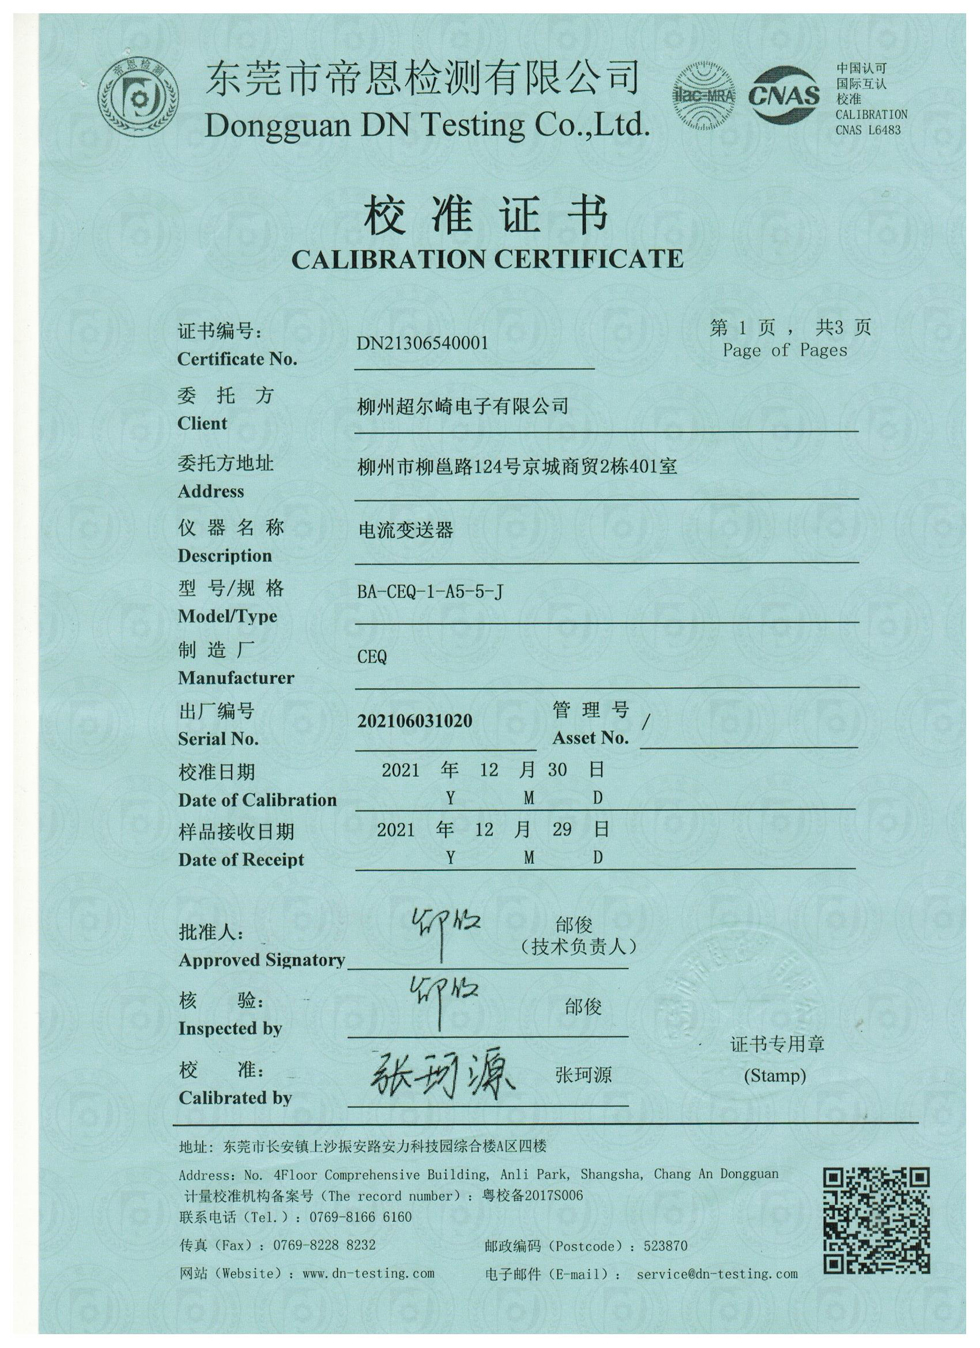 帝恩检测
东莞市帝恩检测有限公司
Dongguan DN Testing Co.,Ltd.
ilac-MRA
CNAS
中国认可
国际互认
校准
CALIBRATION
CNAS L6483
校准证书
CALIBRATION CERTIFICATE
证书编号:
Certificate No.
DN21306540001
第 1 页 , 共3 页
Page of Pages
委 托 方
Client
柳州超尔崎电子有限公司
委托方地址
Address
柳州市柳邕路124号京城商贸2栋401室
仪 器 名 称
Description
电流变送器
型 号/规 格
Model/Type
BA-CEQ-1-A5-5-J
制 造 厂
Manufacturer
CEQ
出厂编号
Serial No.
202106031020
管 理 号
Asset No.
/
校准日期
Date of Calibration
2021 年 12 月 30 日
Y M D
样品接收日期
Date of Receipt
2021 年 12 月 29 日
Y M D
批准人:
Approved Signatory
邰俊
(技术负责人)
核 验:
Inspected by
邰俊
校 准:
Calibrated by
张珂源
张珂源
证书专用章
(Stamp)
地址: 东莞市长安镇上沙振安路安力科技园综合楼A区四楼
Address: No. 4Floor Comprehensive Building, Anli Park, Shangsha, Chang An Dongguan
计量校准机构备案号 (The record number) : 粤校备2017S006
联系电话 (Tel.) : 0769-8166 6160
传真 (Fax) : 0769-8228 8232
邮政编码 (Postcode) : 523870
网站 (Website) : www.dn-testing.com
电子邮件 (E-mail) : service@dn-testing.com